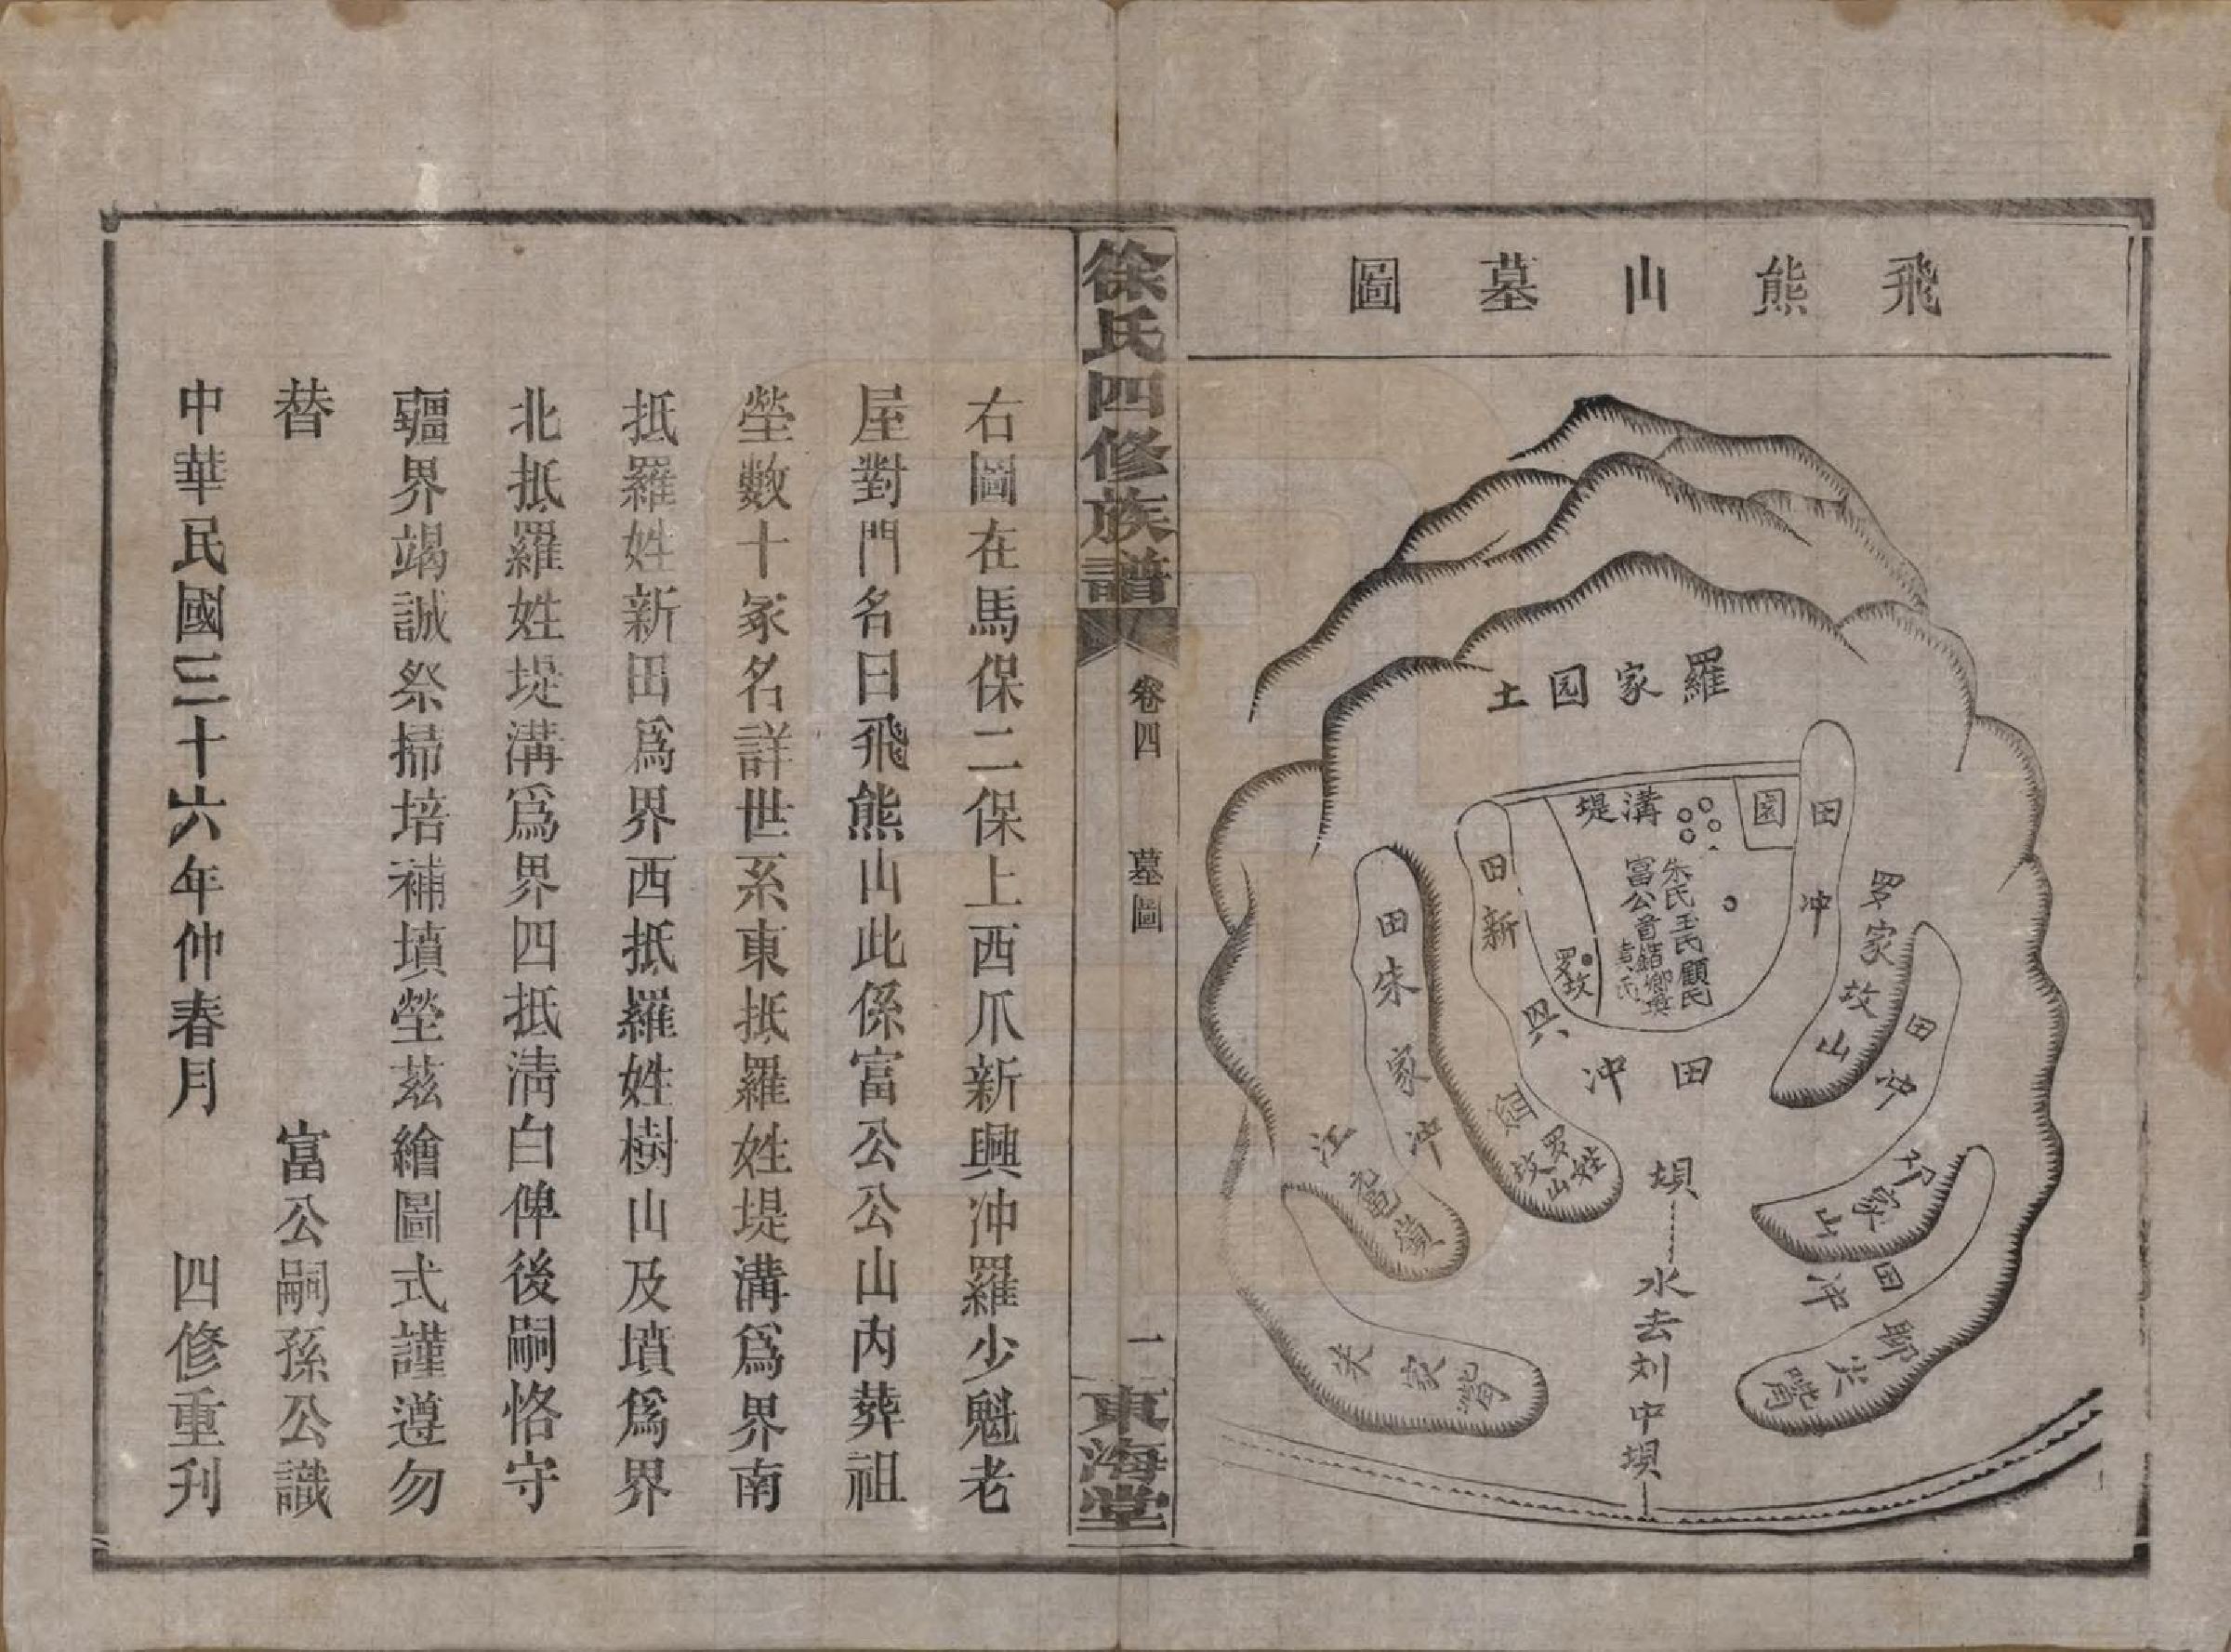 飛熊山墓圖
羅家园土
溝堤
園
田冲
田新
朱氏王氏顧氏
富公音
袁氏
罗坟
罗家坟山
田冲
田朱家冲
田冲
罗姓坟山
家山
田冲
坝
水去刘中坝
徐氏四修族譜
卷四
墓圖
一
東海堂
右圖在馬保二保上西爪新興冲羅少魁老
屋對門名曰飛熊山此係富公公山内葬祖
塋數十冢名詳世系東抵羅姓堤溝爲界南
抵羅姓新田爲界西抵羅姓樹山及墳爲界
北抵羅姓堤溝爲界四抵清白俾後嗣恪守
疆界竭誠祭掃培補墳塋茲繪圖式謹遵勿
替
富公嗣孫公識
中華民國三十六年仲春月
四修重刋